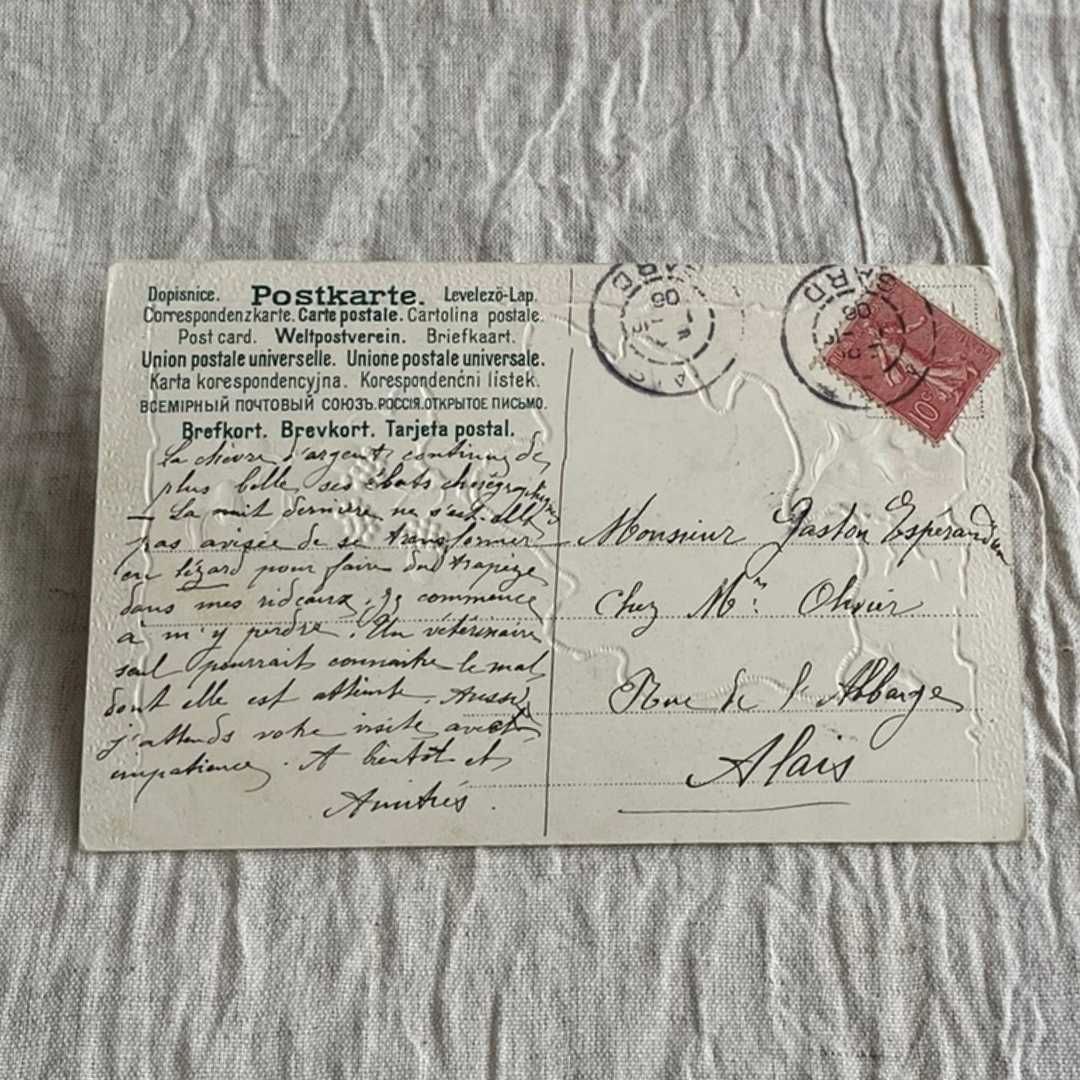 Dopisnice. Postkarte. Levelezö-Lap.
Correspondenzkarte. Carte postale. Cartolina postale.
Post card. Weltpostverein. Briefkaart.
Union postale universelle. Unione postale universale.
Karta korespondencyjna. Korespondenčni listek.
ВСЕМІРНЫЙ ПОЧТОВЫЙ СОЮЗЪ. РОССІЯ. ОТКРЫТОЕ ПИСЬМО.
Brefkort. Brevkort. Tarjeta postal.
La chèvre d'argent continue de
plus belle ses ébats chorégraphiques
— La nuit dernière ne s'est-elle
pas avisée de se transformer
en lézard pour faire du trapèze
dans mes rideaux. Je commence
à m'y perdre. Un vétérinaire
seul pourrait connaitre le mal
dont elle est atteinte. Aussi
j'attends votre visite avec
impatience. A bientôt et
Amitiés.
GARD
06
GARD
06
10c
Monsieur Gaston Espérandieu
Chez Mr. Olivier
Rue de l'Abbaye
Alais